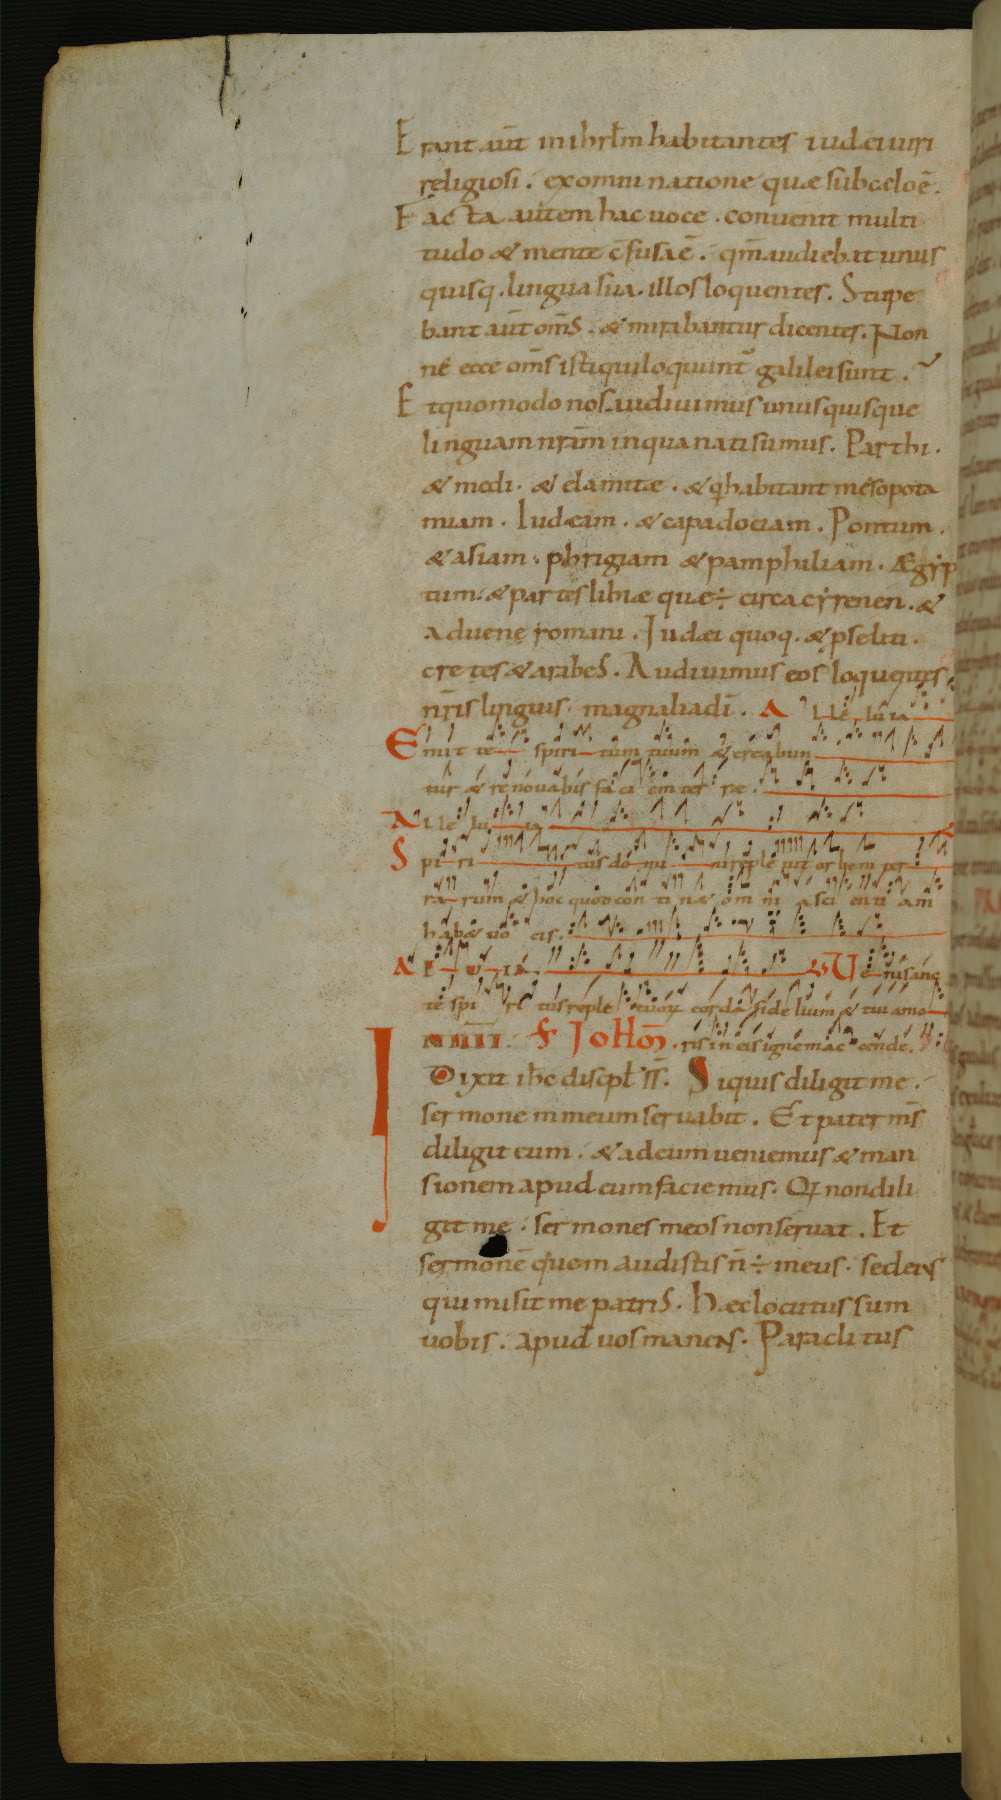 Erant aut̄ in ihrłm habitantes iudei uiri
religiosi . ex omni natione quæ sub cælo ē.
Facta autem hac uoce . conuenit multi
tudo & mente c̄fusa ē . qm̄ audiebat unus
quisq. lingua sua . illos loquentes . Stupe
bant aut̄ om̄s . & mirabantur dicentes . Non
ne ecce om̄s isti qui loquunt̄ galilei sunt .
Et quomodo nos audiuimus unusquisque
linguam nr̄am in qua nati sumus . Parthi .
& medi . & elamitæ . & q̇ habitant mesopota
miam . Iudæam . & capadociam . Pontum .
& asiam . phrigiam & pamphiliam . Ægyp
tum . & partes libiæ quæ ÷ circa cyrenen . &
aduenę romani . Iudæi quoq. & pseliti .
cretes & arabes . Audiuimus eos loquentes
nr̄is linguis . magnalia dī . Alleluia
Emitte spiritum tuum & creabun
tur & renouabis faciem terræ .
Alleluia
Spiritus domini repleuit orbem ter
rarum & hoc quod continæ omnia scientiam
habæ uocis .
AEUIA . Ueni sancte
te spiritus reple tuoꝝ corda fidelium & tui amo
IOHĪS . ris in eis ignem accende .
Dixit ihc discipł s̄s . Siquis diligit me .
sermonem meum seruabit . Et pater m̄s
diligit eum . & ad eum ueniemus & man
sionem apud eum faciemus . Qi non dili
git me . sermones meos non seruat . Et
sermonē quem audistis n̄ ÷ meus . sed eius
qui misit me patris . Hæc locutus sum
uobis . apud uos manens . Paraclitus